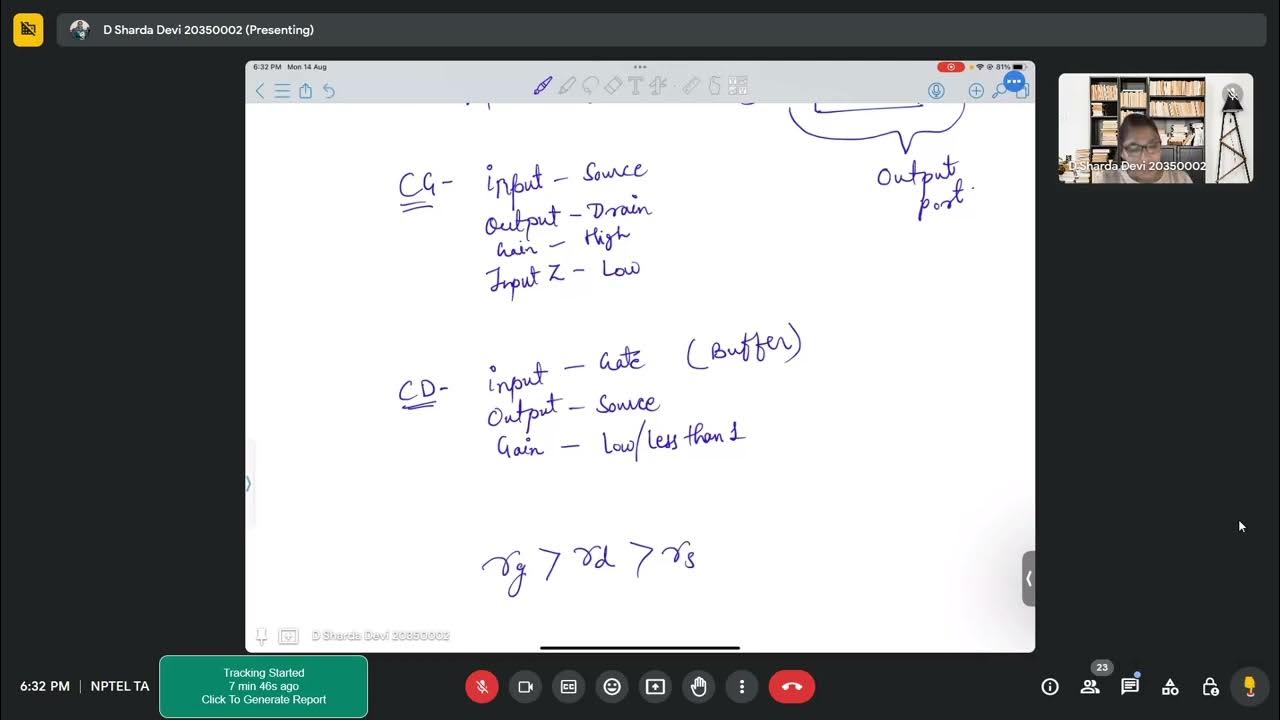 D Sharda Devi 20350002 (Presenting)
6:32 PM Mon 14 Aug
81%
D Sharda Devi 20350002
Output
port
CG - input - Source
Output - Drain
Gain - High
Input Z - Low
CD - input - Gate (Buffer)
Output - Source
Gain - Low/Less than 1
rg > rd > rs
D Sharda Devi 20350002
6:32 PM | NPTEL TA
Tracking Started
7 min 46s ago
Click To Generate Report
23